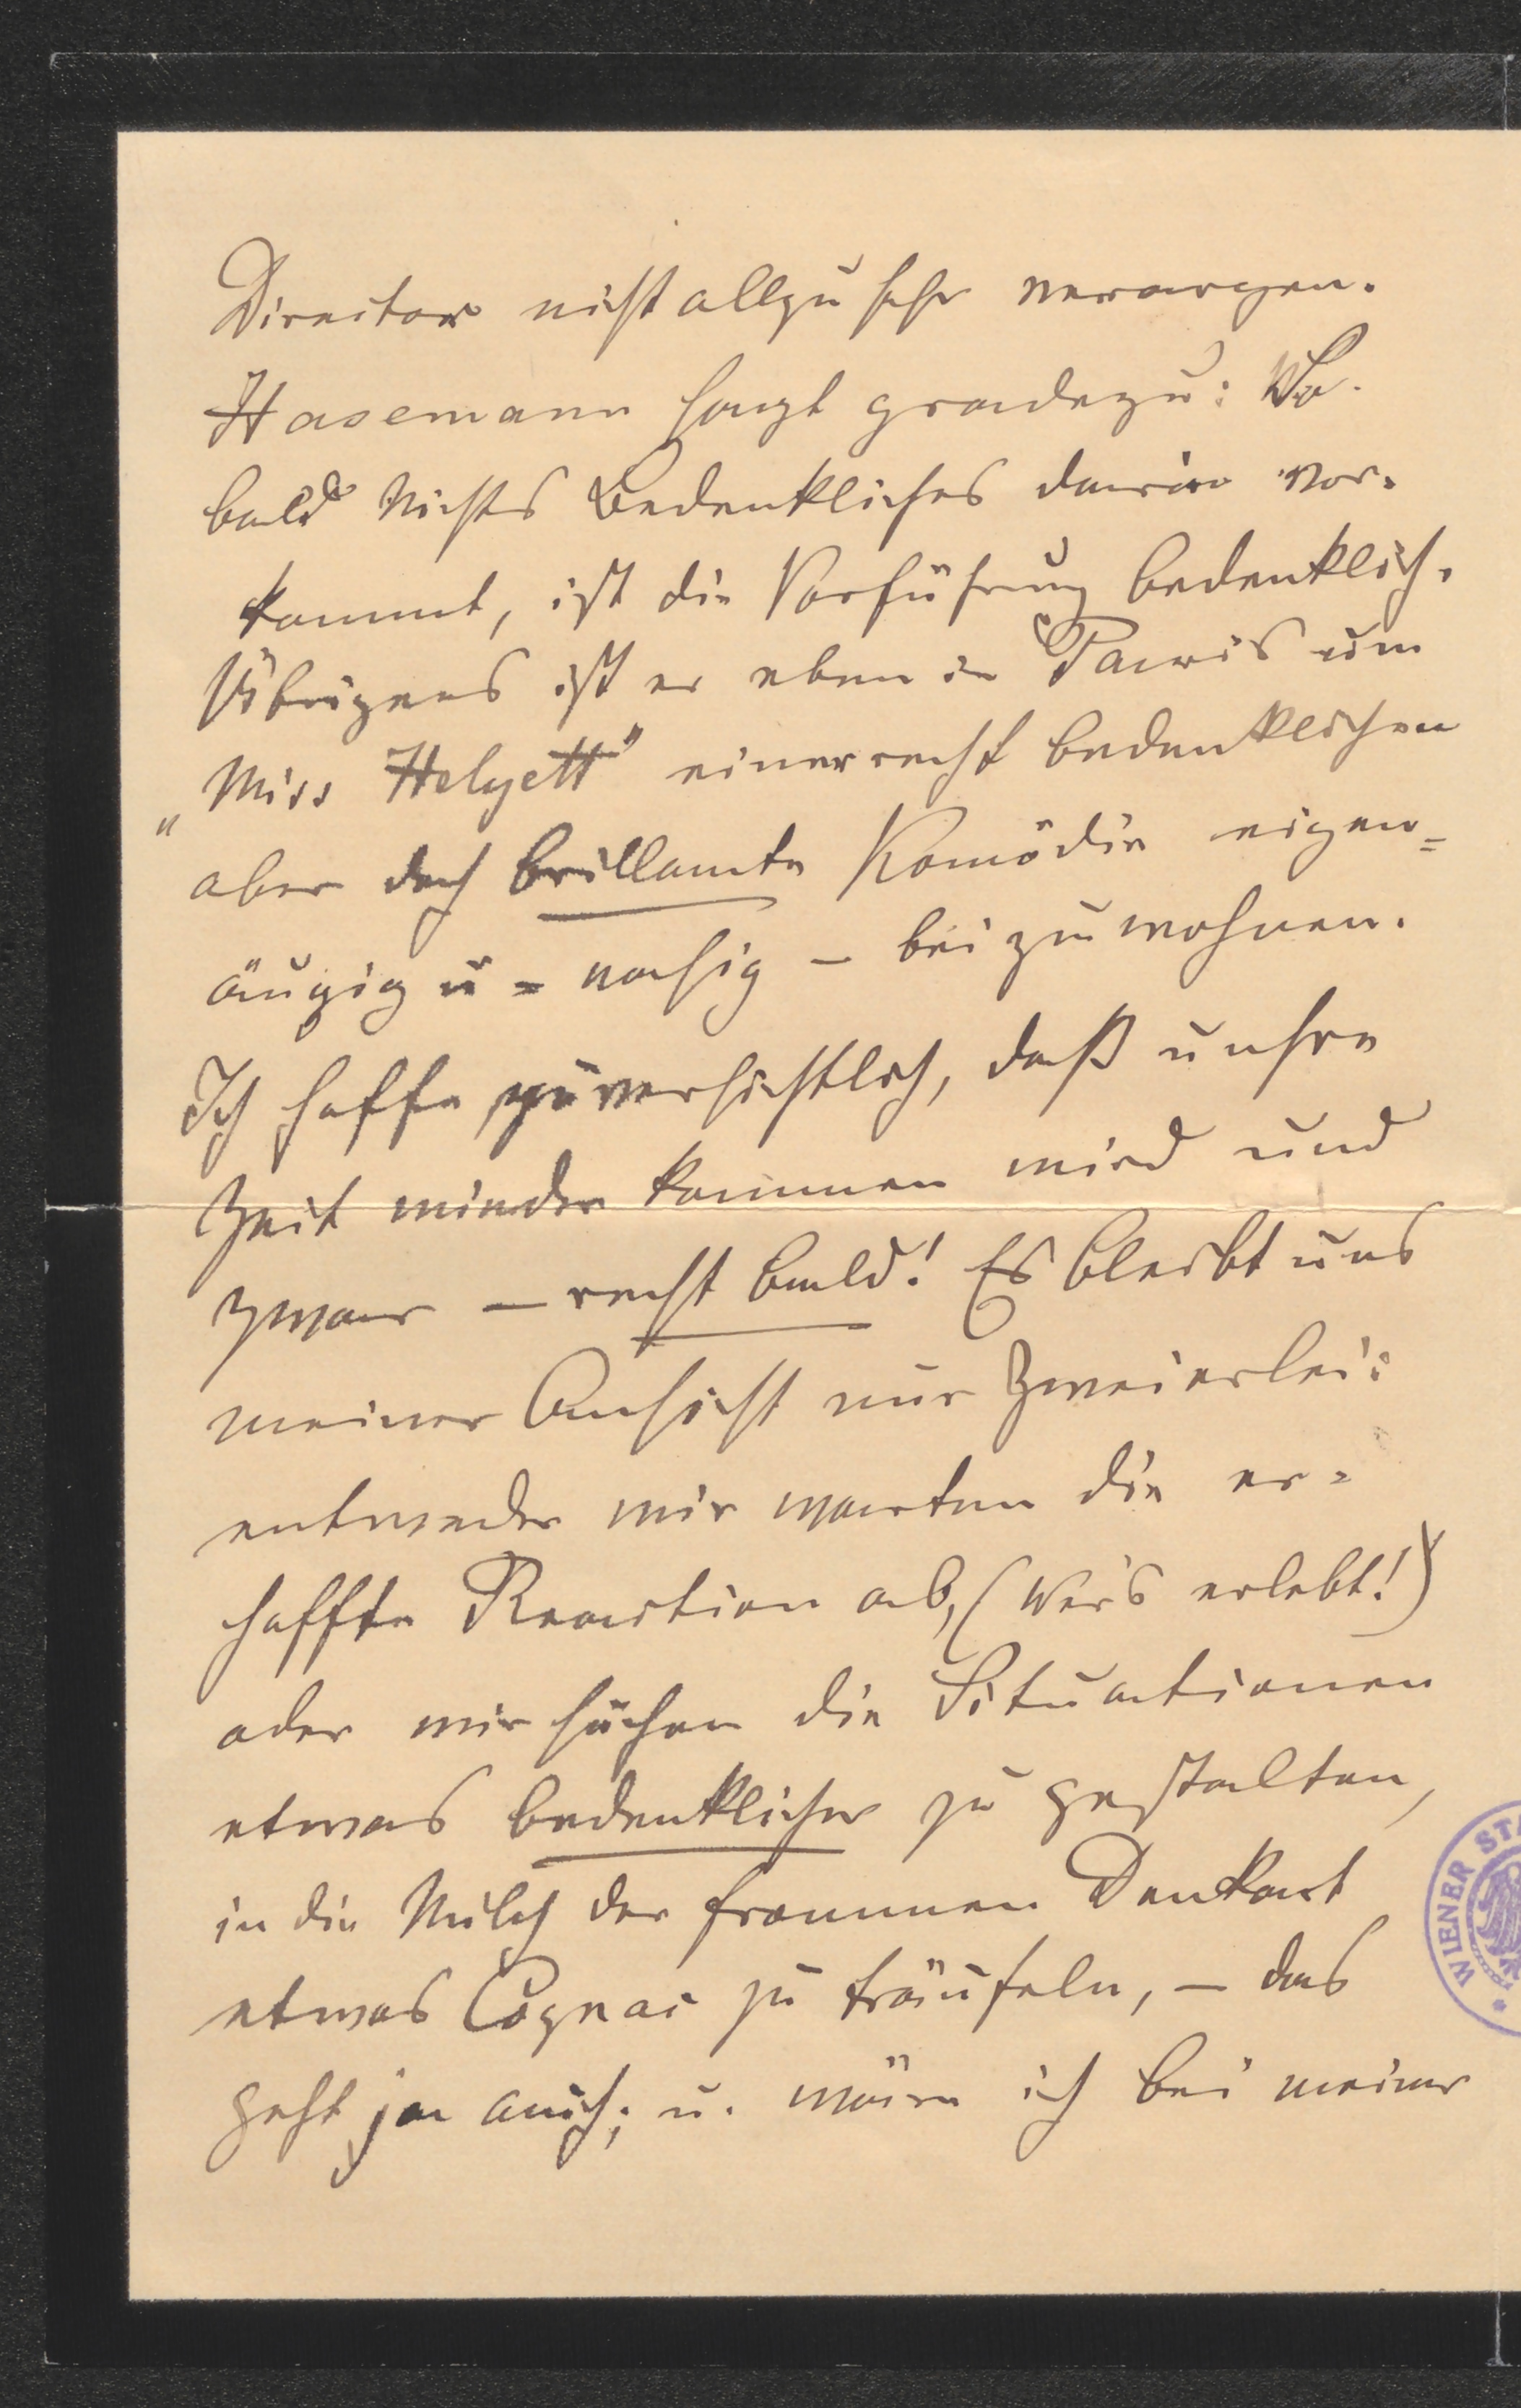 Director nicht allzu sehr verargen.
Hasemann sagt gradezu: So-
bald Nichts Bedenkliches darin vor-
kommt, ist die Vorführung bedenklich.
Übrigens ist er eben in Paris um
„Miss Helyett" einer recht bedenklichen
aber doch brillante Komödie eigen=
äugig u = nasig – beizuwohnen.
Ich hoffe zuversichtlich, daß unsre
Zeit wieder kommen wird und
zwar – recht bald! Es bleibt uns
meiner Ansicht nur Zweierlei:
entweder wir warten die er-
hoffte Reaction ab, (Wer's erlebt!)
oder wir suchen die Situationen
etwas bedenklicher zu gestalten,
in die Milch der frommen Denkart
etwas Cognac zu träufeln, – das
geht ja auch; u. wäre ich bei meiner
WIENER STA